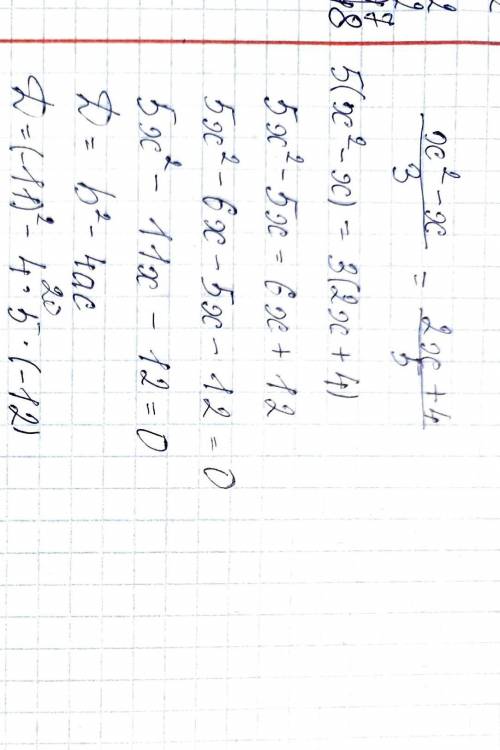 x² - x / 3 = 2x + 4 / 5
5(x² - x) = 3(2x + 4)
5x² - 5x = 6x + 12
5x² - 6x - 5x - 12 = 0
5x² - 11x - 12 = 0
D = b² - 4ac
20
D = (-11)² - 4·5·(-12)